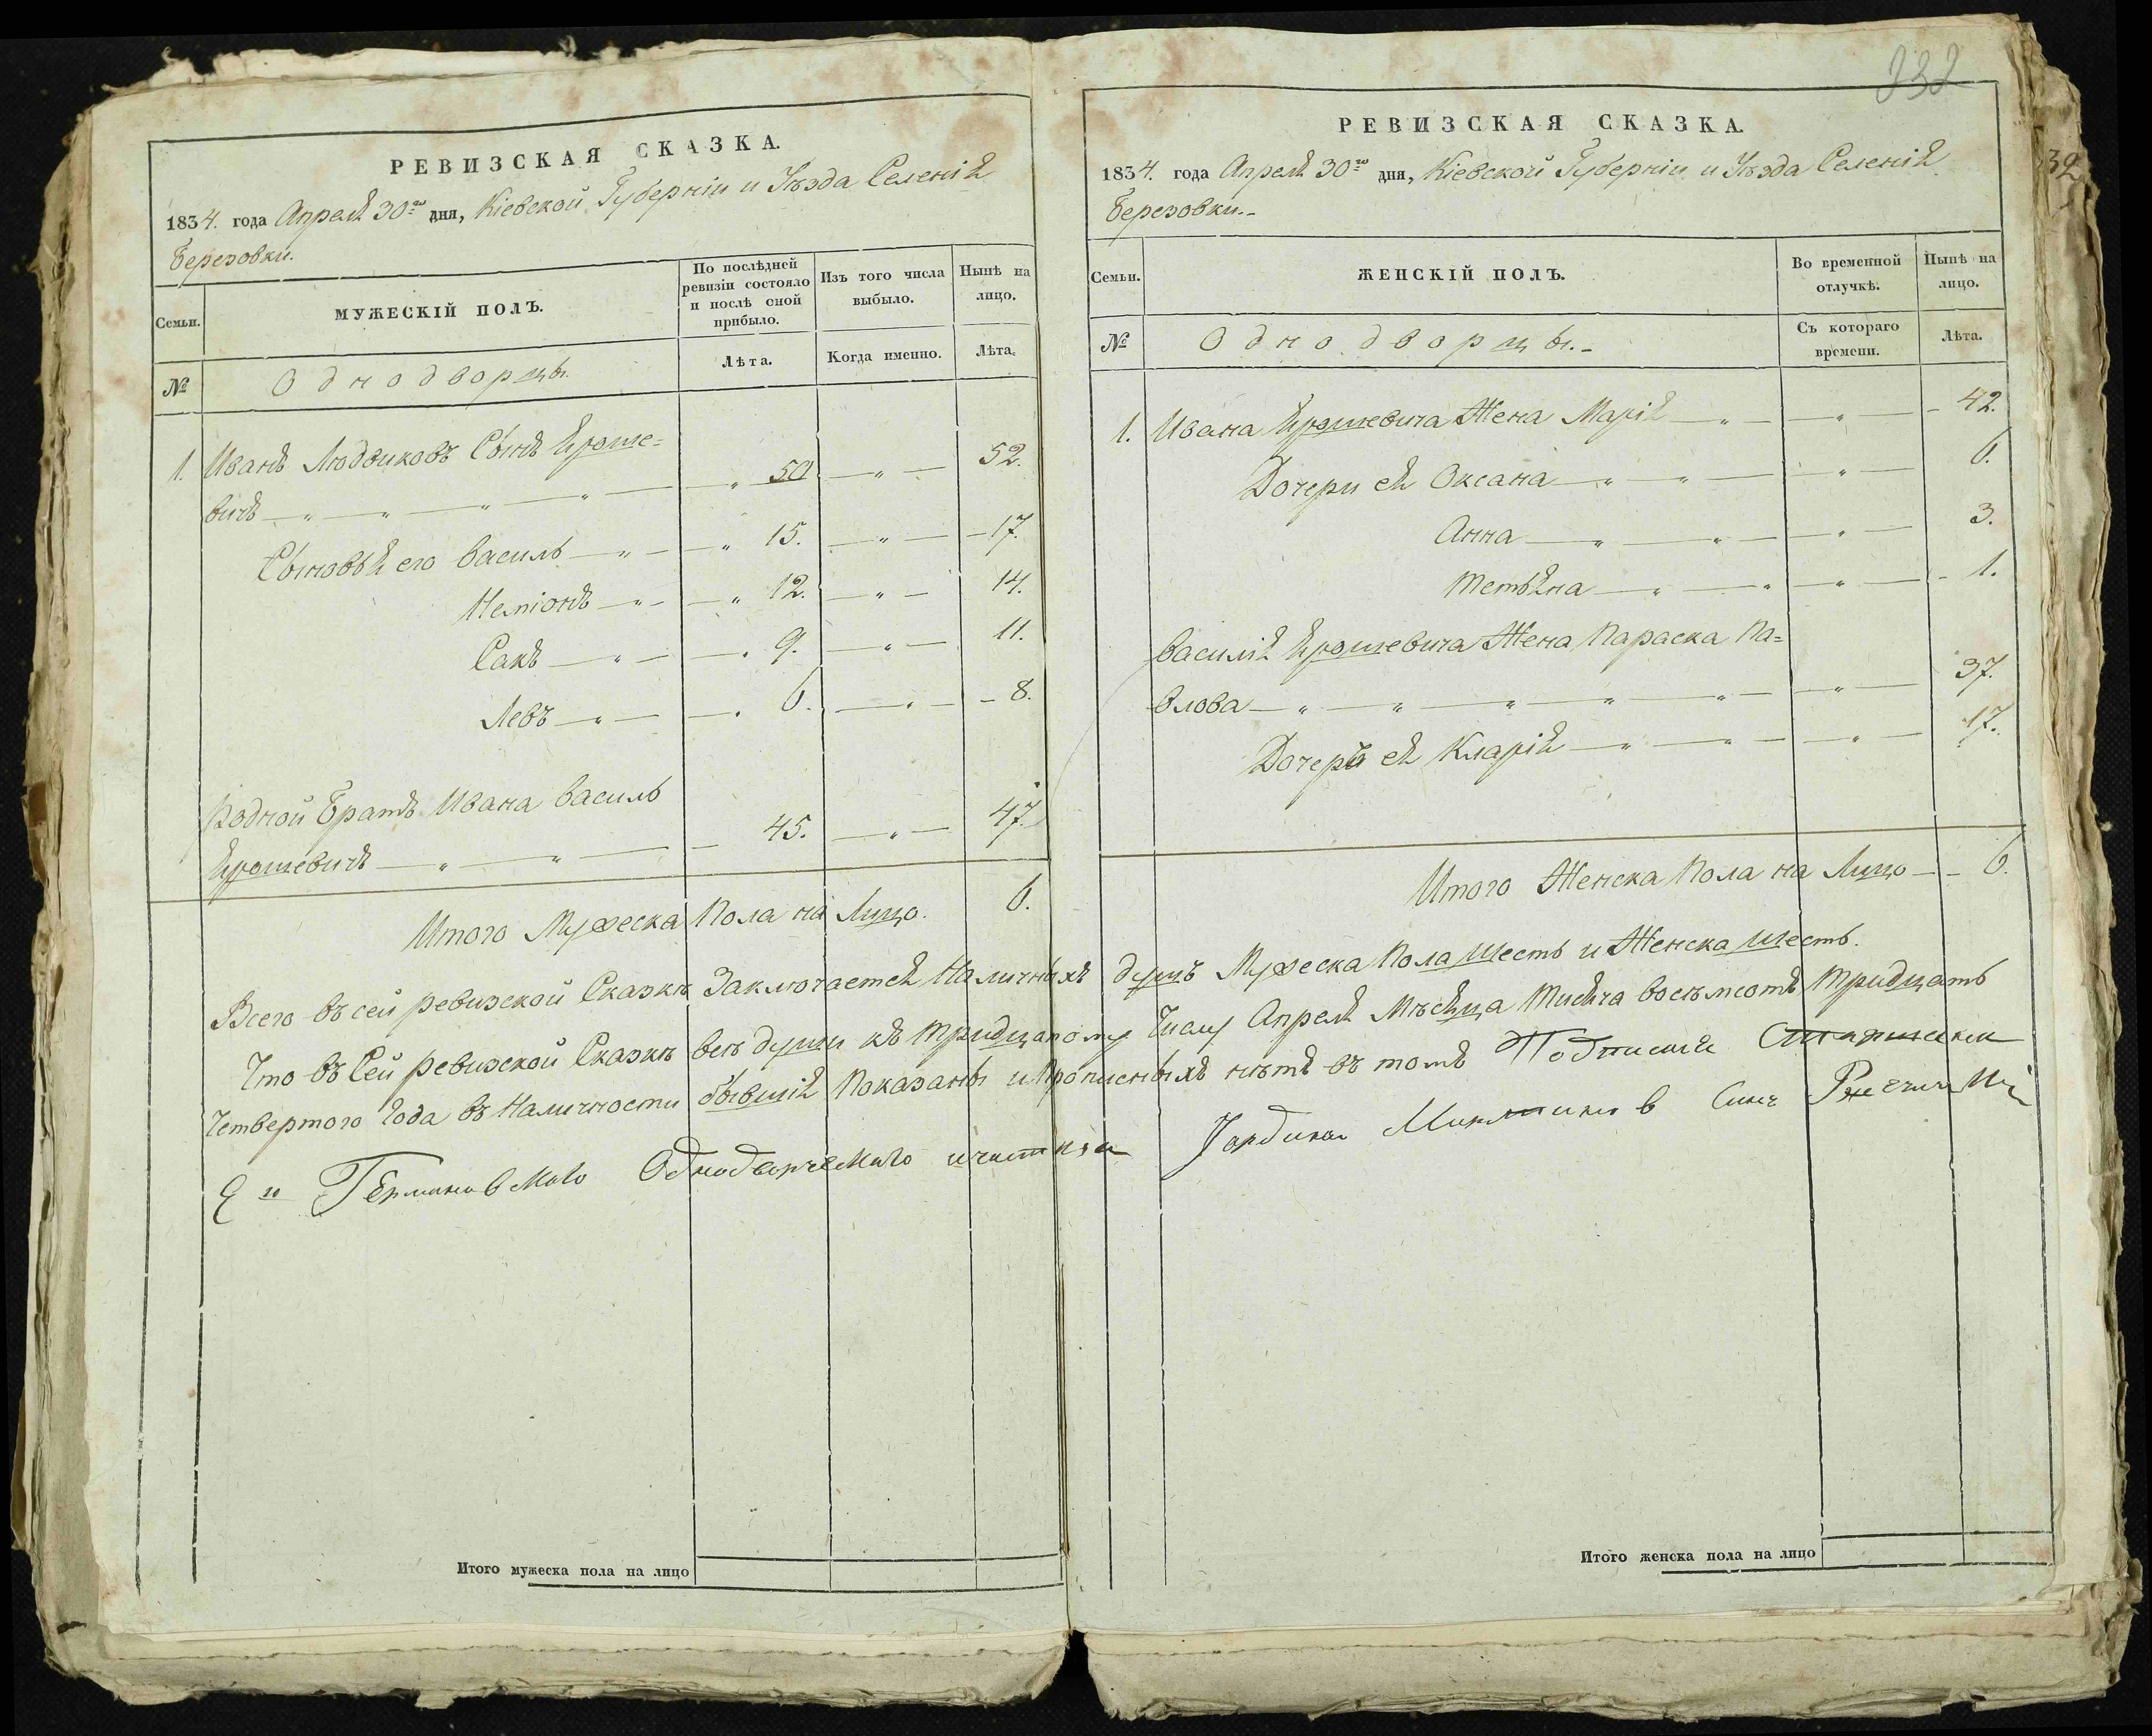 232
РЕВИЗСКАЯ СКАЗКА.
1834. года Апреля 30го дня, Кіевской Губерніи и Уѣзда Селенія
Березовки.
Семьи.
МУЖЕСКІЙ ПОЛЪ.
По послѣдней
ревизіи состояло
и послѣ оной
прибыло.
Изъ того числа
выбыло.
Нынѣ на
лицо.
№
Однодворцы.
Лѣта.
Когда именно.
Лѣта.
1. Иванъ Людвиковъ Сынъ Яроше=
вичъ — „ — „ — „ — „ — „ 50 — „ — 52.
Сыновья его Василь — „ — „ 15. — „ — 17.
— „ — „ 12. — „ — 14.
Сакъ — „ — „ 9. — „ — 11.
Левъ — „ — „ 6. — „ — 8.
Родной Братъ Ивана Василь
Ярошевичъ — „ — „ — 45. — „ — 47.
Итого Мужеска Пола на Лицо. 6.
РЕВИЗСКАЯ СКАЗКА.
1834. года Апреля 30го дня, Кіевской Губерніи и Уѣзда Селенія
Березовки.
Семьи.
ЖЕНСКІЙ ПОЛЪ.
Во временной
отлучкѣ.
Нынѣ на
лицо.
№
Однодворцы.
Съ котораго
времени.
Лѣта.
1. Ивана Ярошевича Жена Марія — „ — „ — 42.
Дочери ея Оксана — „ — „ — „ — 6.
Анна — „ — „ — „ — 3.
Тетьяна — „ — „ — „ — 1.
Василія Ярошевича Жена Параска Па=
влова — „ — „ — „ — „ — „ — „ — 37.
Дочерь ея Кларія — „ — „ — „ — 17.
Итого Женска Пола на Лицо — 6.
Всего въ сей ревизской Сказкѣ Заключается Наличныхъ душъ Мужеска Пола Шесть и Женска шесть.
Что въ Сей ревизской Сказкѣ всѣ души къ тридцатому Числу Апреля Мѣсяца Тисяча восемсотъ тридцать
Четвертого Года въ Наличности бывшія Показаны и Прописныхъ нѣтъ въ томъ Подписался
Однодворческаго участка
Итого мужеска пола на лицо
Итого женска пола на лицо